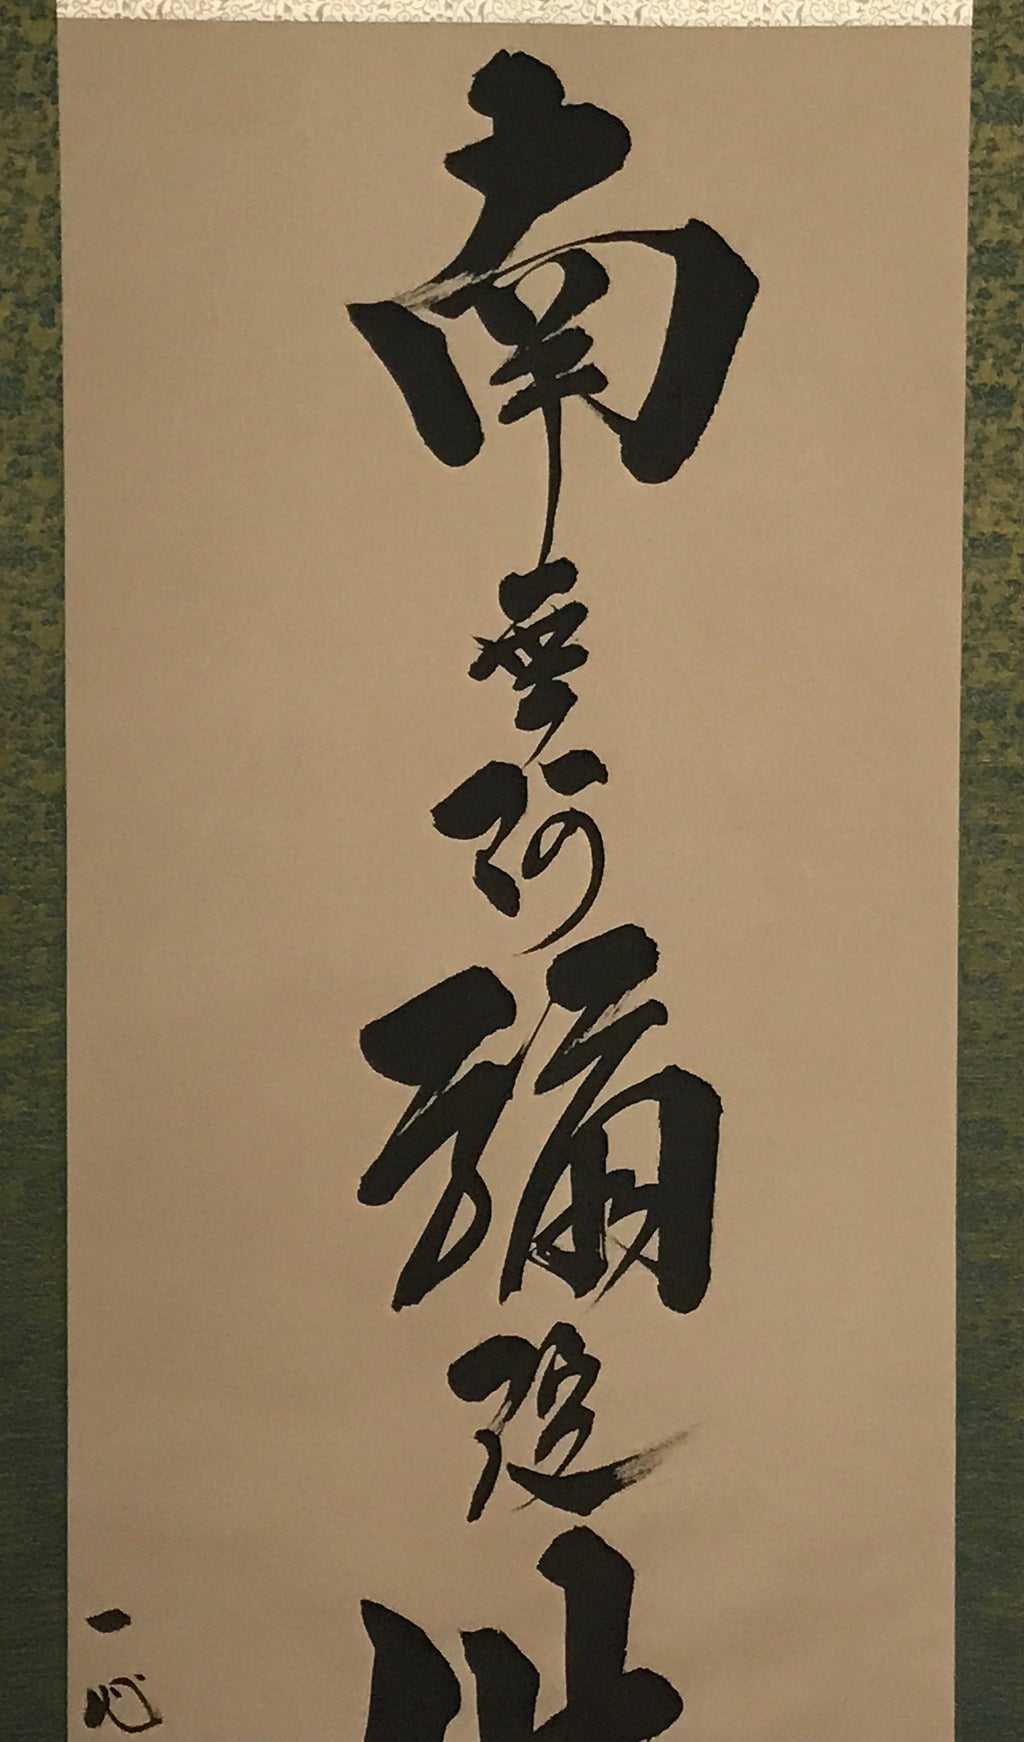 南無阿彌陀
一心